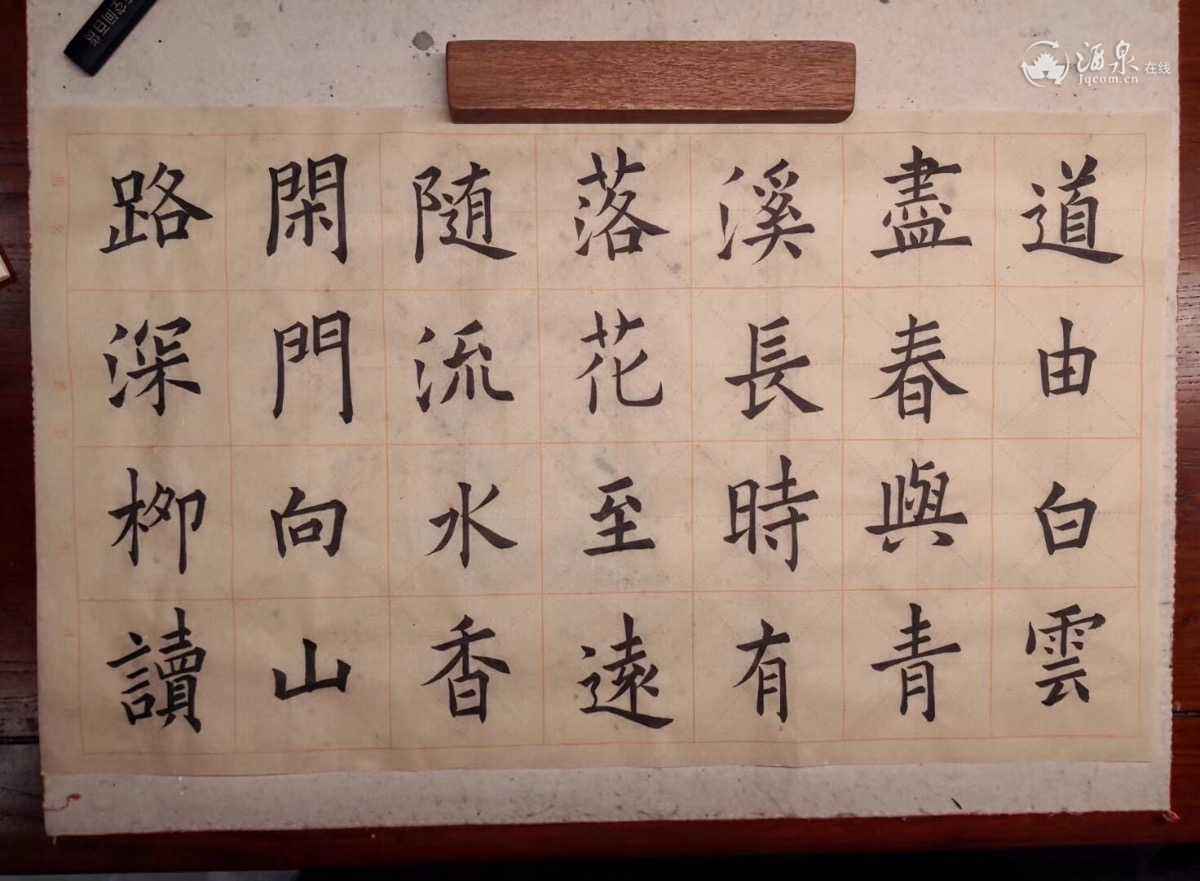 道由白雲
盡春與青
溪長時有
落花至遠
随流水香
閑門向山
路深柳讀
酒泉在线
Jqcom.cn